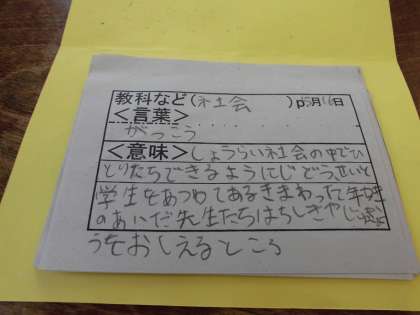 教科など(社会)p5月16日
<言葉>
がっこう
<意味>しょうらい社会の中でひ
とりだちできるようにじどうせいと
学生をあつめてあるきまわった年
のあいだ先生たちはちしきやじょう
うをおしえるところ